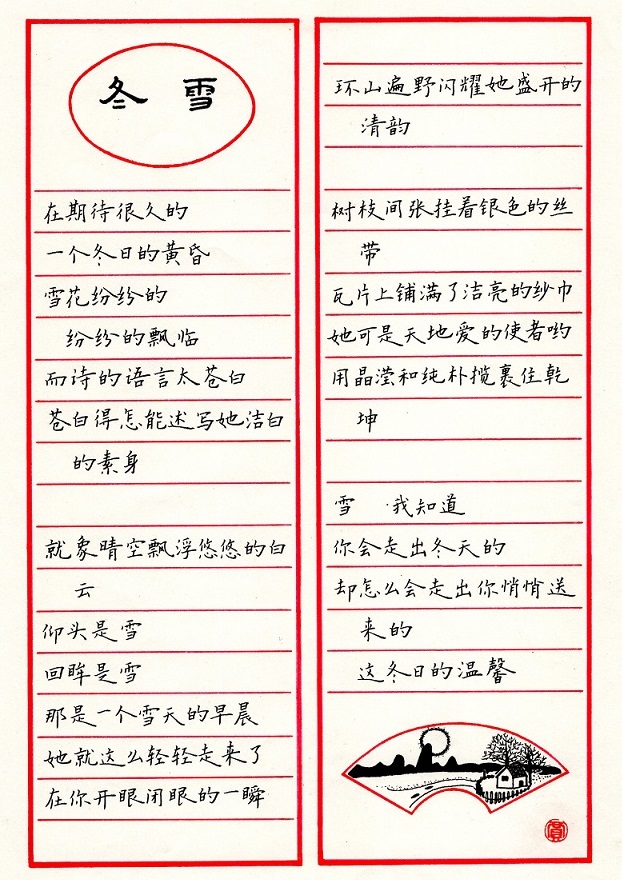 冬 雪
在期待很久的
一个冬日的黄昏
雪花纷纷的
纷纷的飘临
而诗的语言太苍白
苍白得怎能述写她洁白
的素身
就象晴空飘浮悠悠的白
云
仰头是雪
回眸是雪
那是一个雪天的早晨
她就这么轻轻走来了
在你开眼闭眼的一瞬
环山遍野闪耀她盛开的
清韵
树枝间张挂着银色的丝
带
瓦片上铺满了洁亮的纱巾
她可是天地爱的使者哟
用晶滢和纯朴揽裹住乾
坤
雪 我知道
你会走出冬天的
却怎么会走出你悄悄送
来的
这冬日的温馨